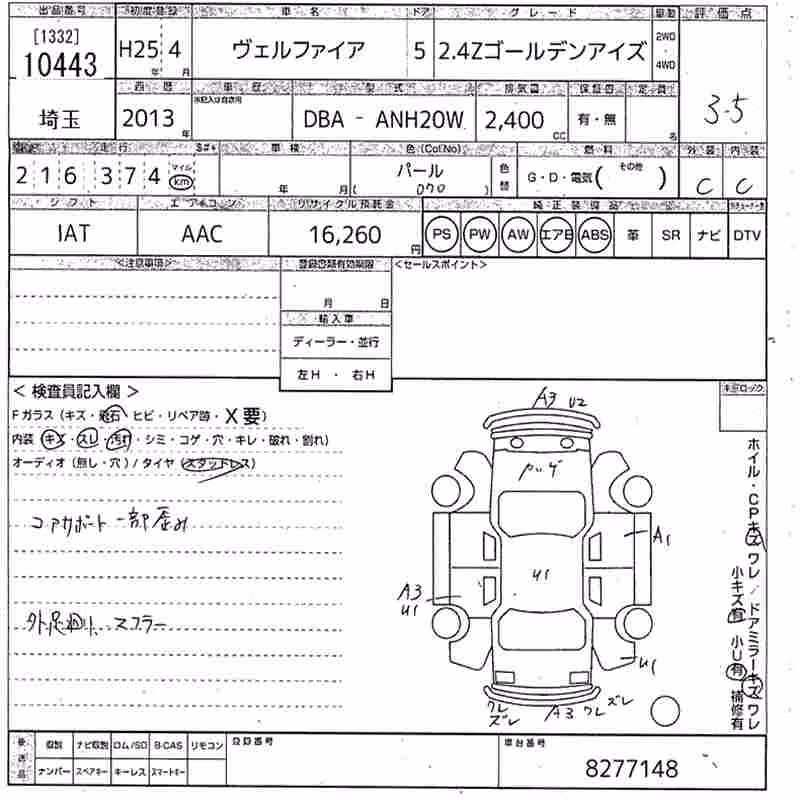 出品番号 初度登録 車名 ドア グレード 駆動 評価点
[1332] 10443 H25 年 4 月 ヴェルファイア 5 2.4Zゴールデンアイズ 2WD ・ 4WD 3.5
西暦 車歴 型式 排気量 保証書 定員
埼玉 2013 年 未記入は自家用 DBA - ANH20W 2,400 CC 有・無 名
走行 車検 色(Col.No) 色替 燃料 外装 内装
216374 マイル km 年 月 パール ( 070 ) G・D・電気( その他 ) C C
シフト エアコン リサイクル預託金 純正装備品
IAT AAC 16,260 円 PS PW AW エアB ABS 革 SR ナビ DTV
<注意事項> 登録書類有効期限 <セールスポイント>
月 日
輸入車
ディーラー・並行
左H ・ 右H
< 検査員記入欄 >
Fガラス (キズ・飛石・ヒビ・リペア跡・X要)
内装 (キズ・スレ・汚れ・シミ・コゲ・穴・キレ・破れ・割れ)
オーディオ (無し・穴) / タイヤ (スタッドレス)
コアサポート一部歪み
外足廻り、マフラー
A3 U2
A1
U1
A3
U1
U1
ワレ ズレ A3 ワレ ズレ
ホイル・CPキズ ワレ / ドアミラーキズ ワレ
小キズ有 小U有 補修有
後送品 取説 ナビ取説 ロム/SD B-CAS リモコン 登録番号 車台番号
ナンバー スペアキー キーレス スマートキー 8277148